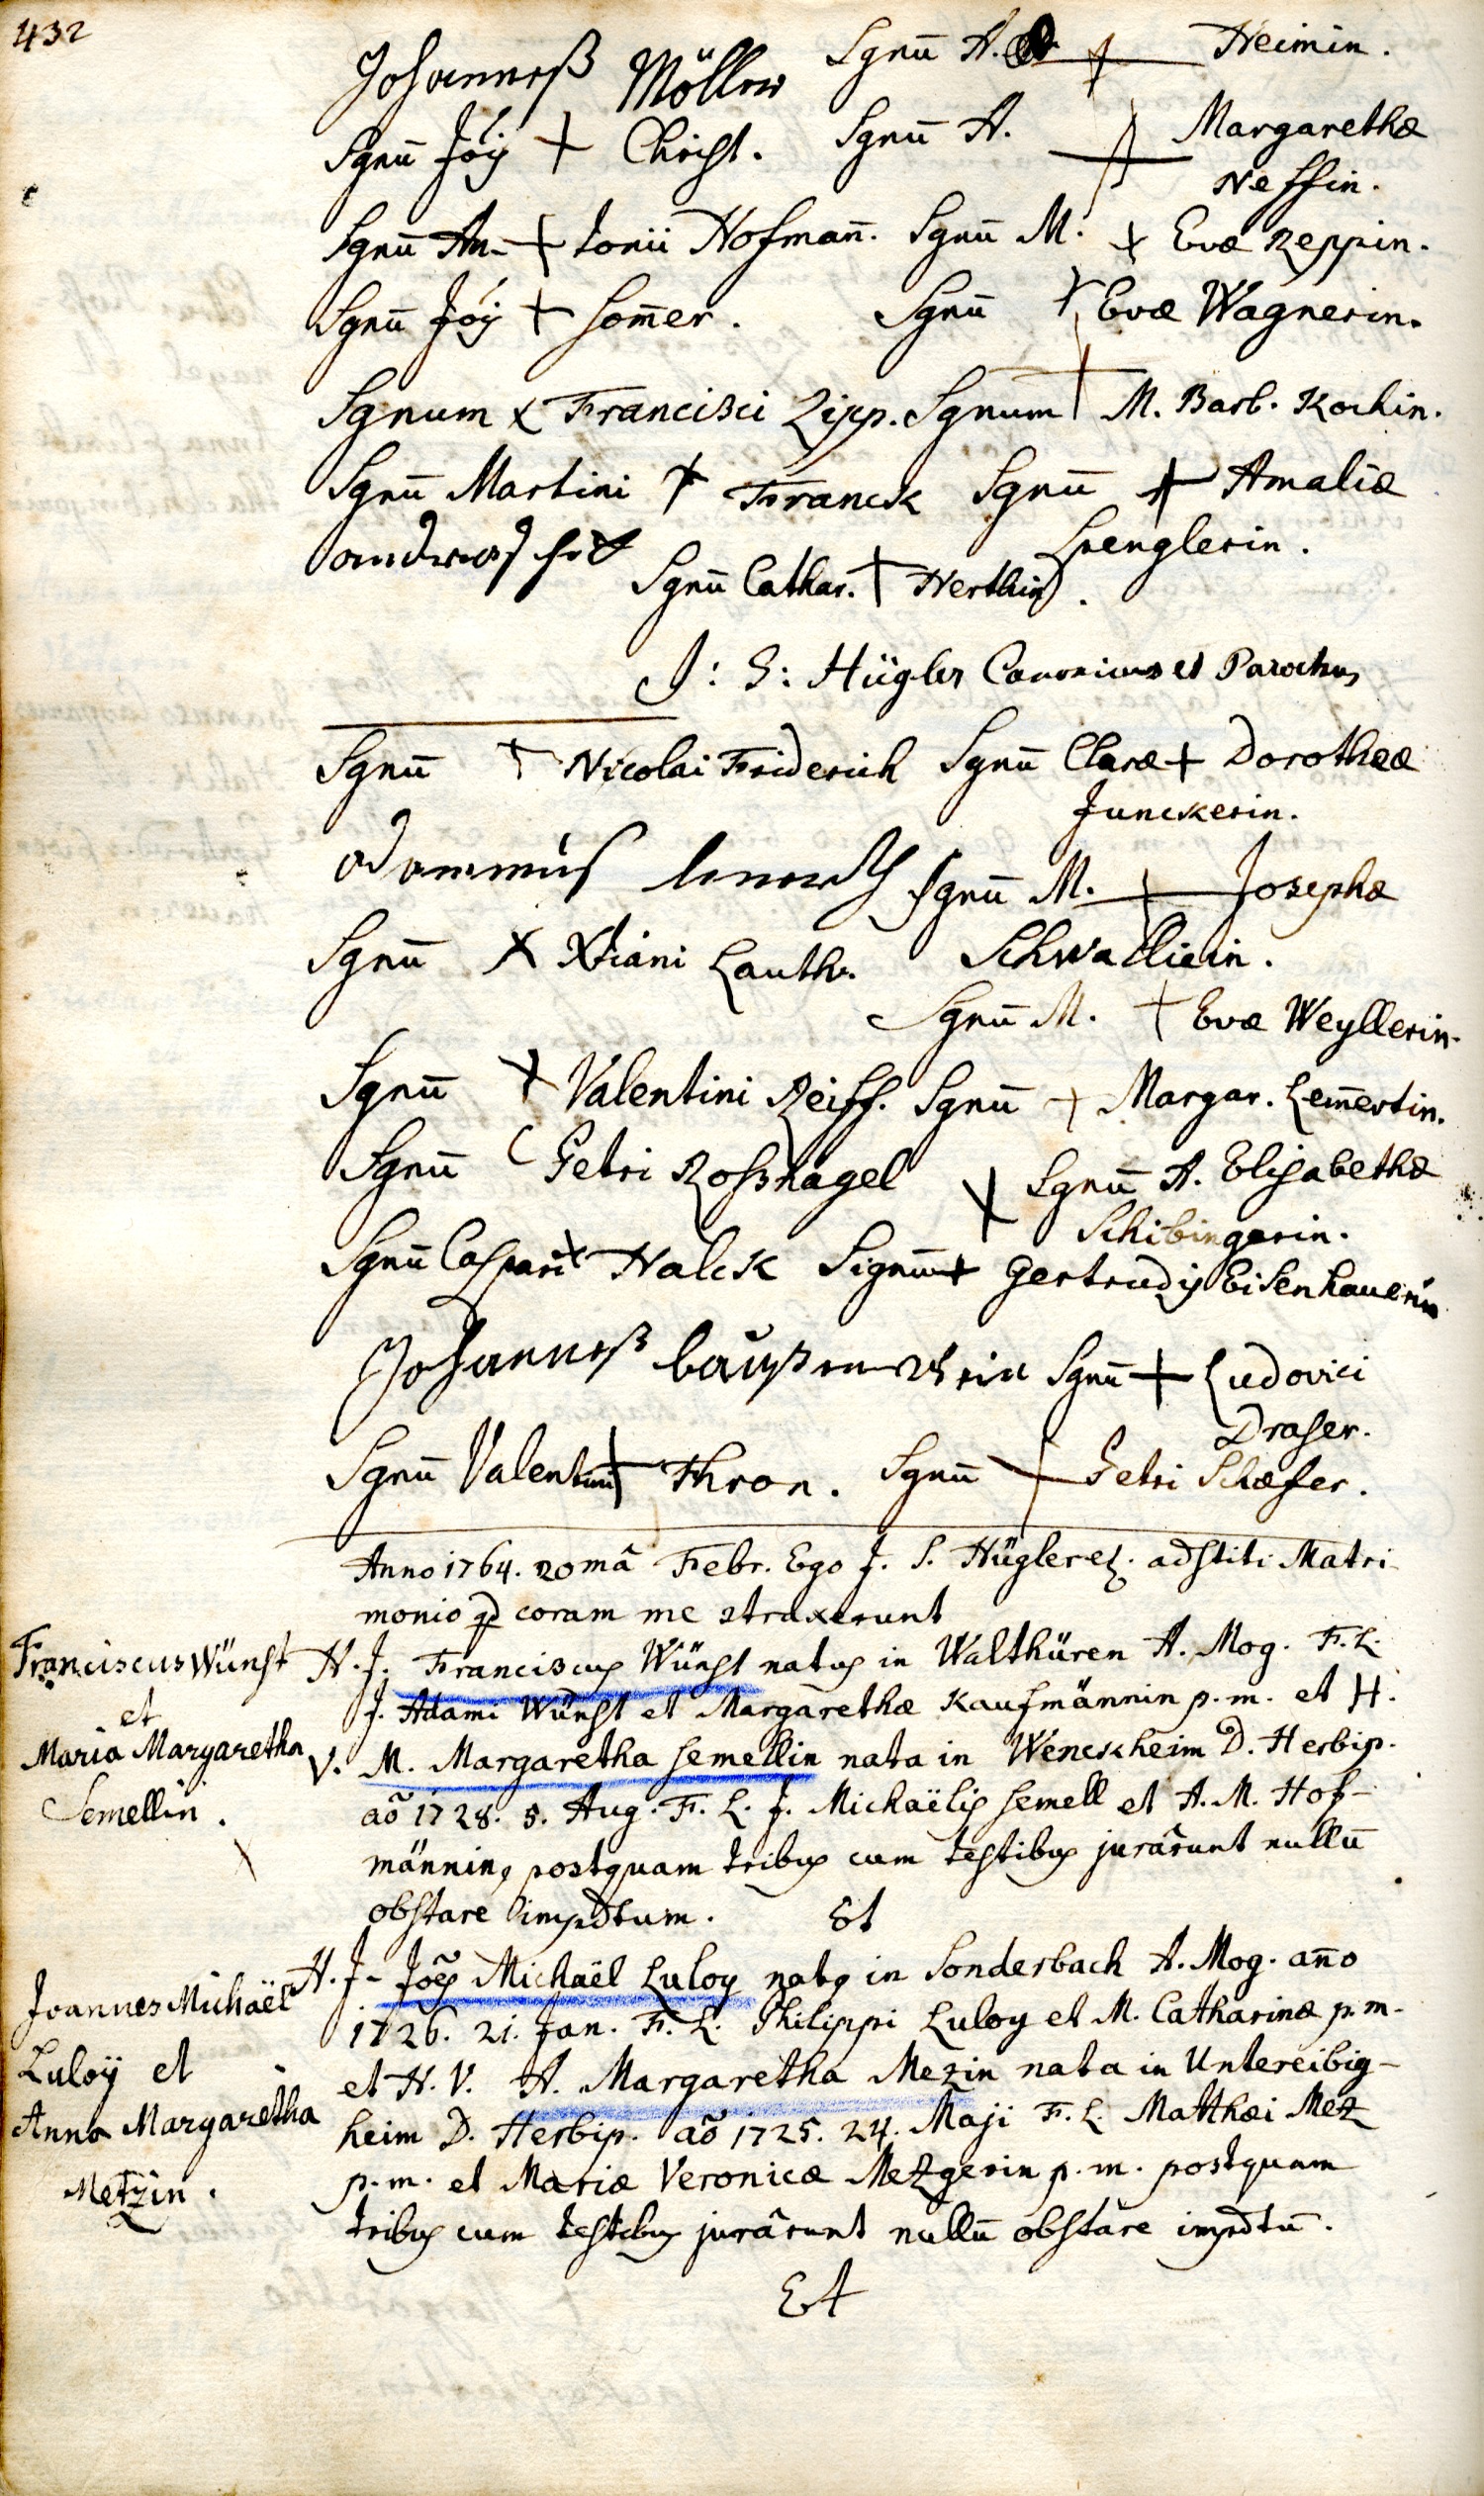 432
Johanneß Möller Sgnū A. + Heimin.
Sgnū Jois + Christ. Sgnū A. + Margarethæ
Neffin.
Sgnū An- + tonii Hofman̄. Sgnū M. + Evæ Reppin.
Sgnū Jois + Som̄er. Sgnū + Evæ Wagnerin.
Sgnum x Francisci Zipp. Sgnum + M. Barb. Kochin.
Sgnū Martini + Franck Sgnū + Amaliæ
Spenglerin.
Sgnū Cathar. + Herthin.
J: S: Hügler Canonicus et Parochus
Sgnū + Nicolai Friderich Sgnū Claræ + Dorotheæ
Junckerin.
Sgnū M. + Josephæ
Sgnū X Xtiani Lauth. Schwallicin.
Sgnū M. + Evæ Weyllerin.
Sgnū + Valentini Reiff. Sgnū + Margar. Lem̄ertin.
Sgnū ( Petri Roßnagel + Sgnū A. Elisabethæ
Schibingerin.
Sgnū Caspari x Halck Signum + Gertrudis Eisenhauerin
Johanneß Sgnū + Ludovici
Draser.
Sgnū Valentini + Thron. Sgnū + Petri Schæfer.
Anno 1764. 20mâ Febr. Ego J. S. Hügler etz. adstiti Matri-
monio qd coram me 2traxerunt
Franciscus Wünst
et
Maria Margaretha
Semellin.
H. J. Franciscus Wünst natus in Walthüren A. Mog. F. L.
J. Adami Wünst et Margarethæ Kaufmännin p. m. et H.
V. M. Margaretha Semellin nata in Wenckheim D. Herbip.
aō 1728. 5. Aug. F. L. J. Michaëlis Semell et A. M. Hof-
männin, postquam tribus cum testibus jurârunt nullū
obstare impdtum. Et
Joannes Michaël
Luloÿ et
Anna Margaretha
Metzin.
H. J. Jōes Michaël Luloy natus in Sonderbach A. Mog. an̄o
1726. 21. Jan. F. L. Philippi Luloy et M. Catharinæ p. m.
et H. V. A. Margaretha Mezin nata in Untereibig-
heim D. Herbip. aō 1725. 24. Maji F. L. Matthæi Metz
p. m. et Mariæ Veronicæ Metzgerin p. m. postquam
tribus cum testibus jurârunt nullū obstare impdtū.
Et